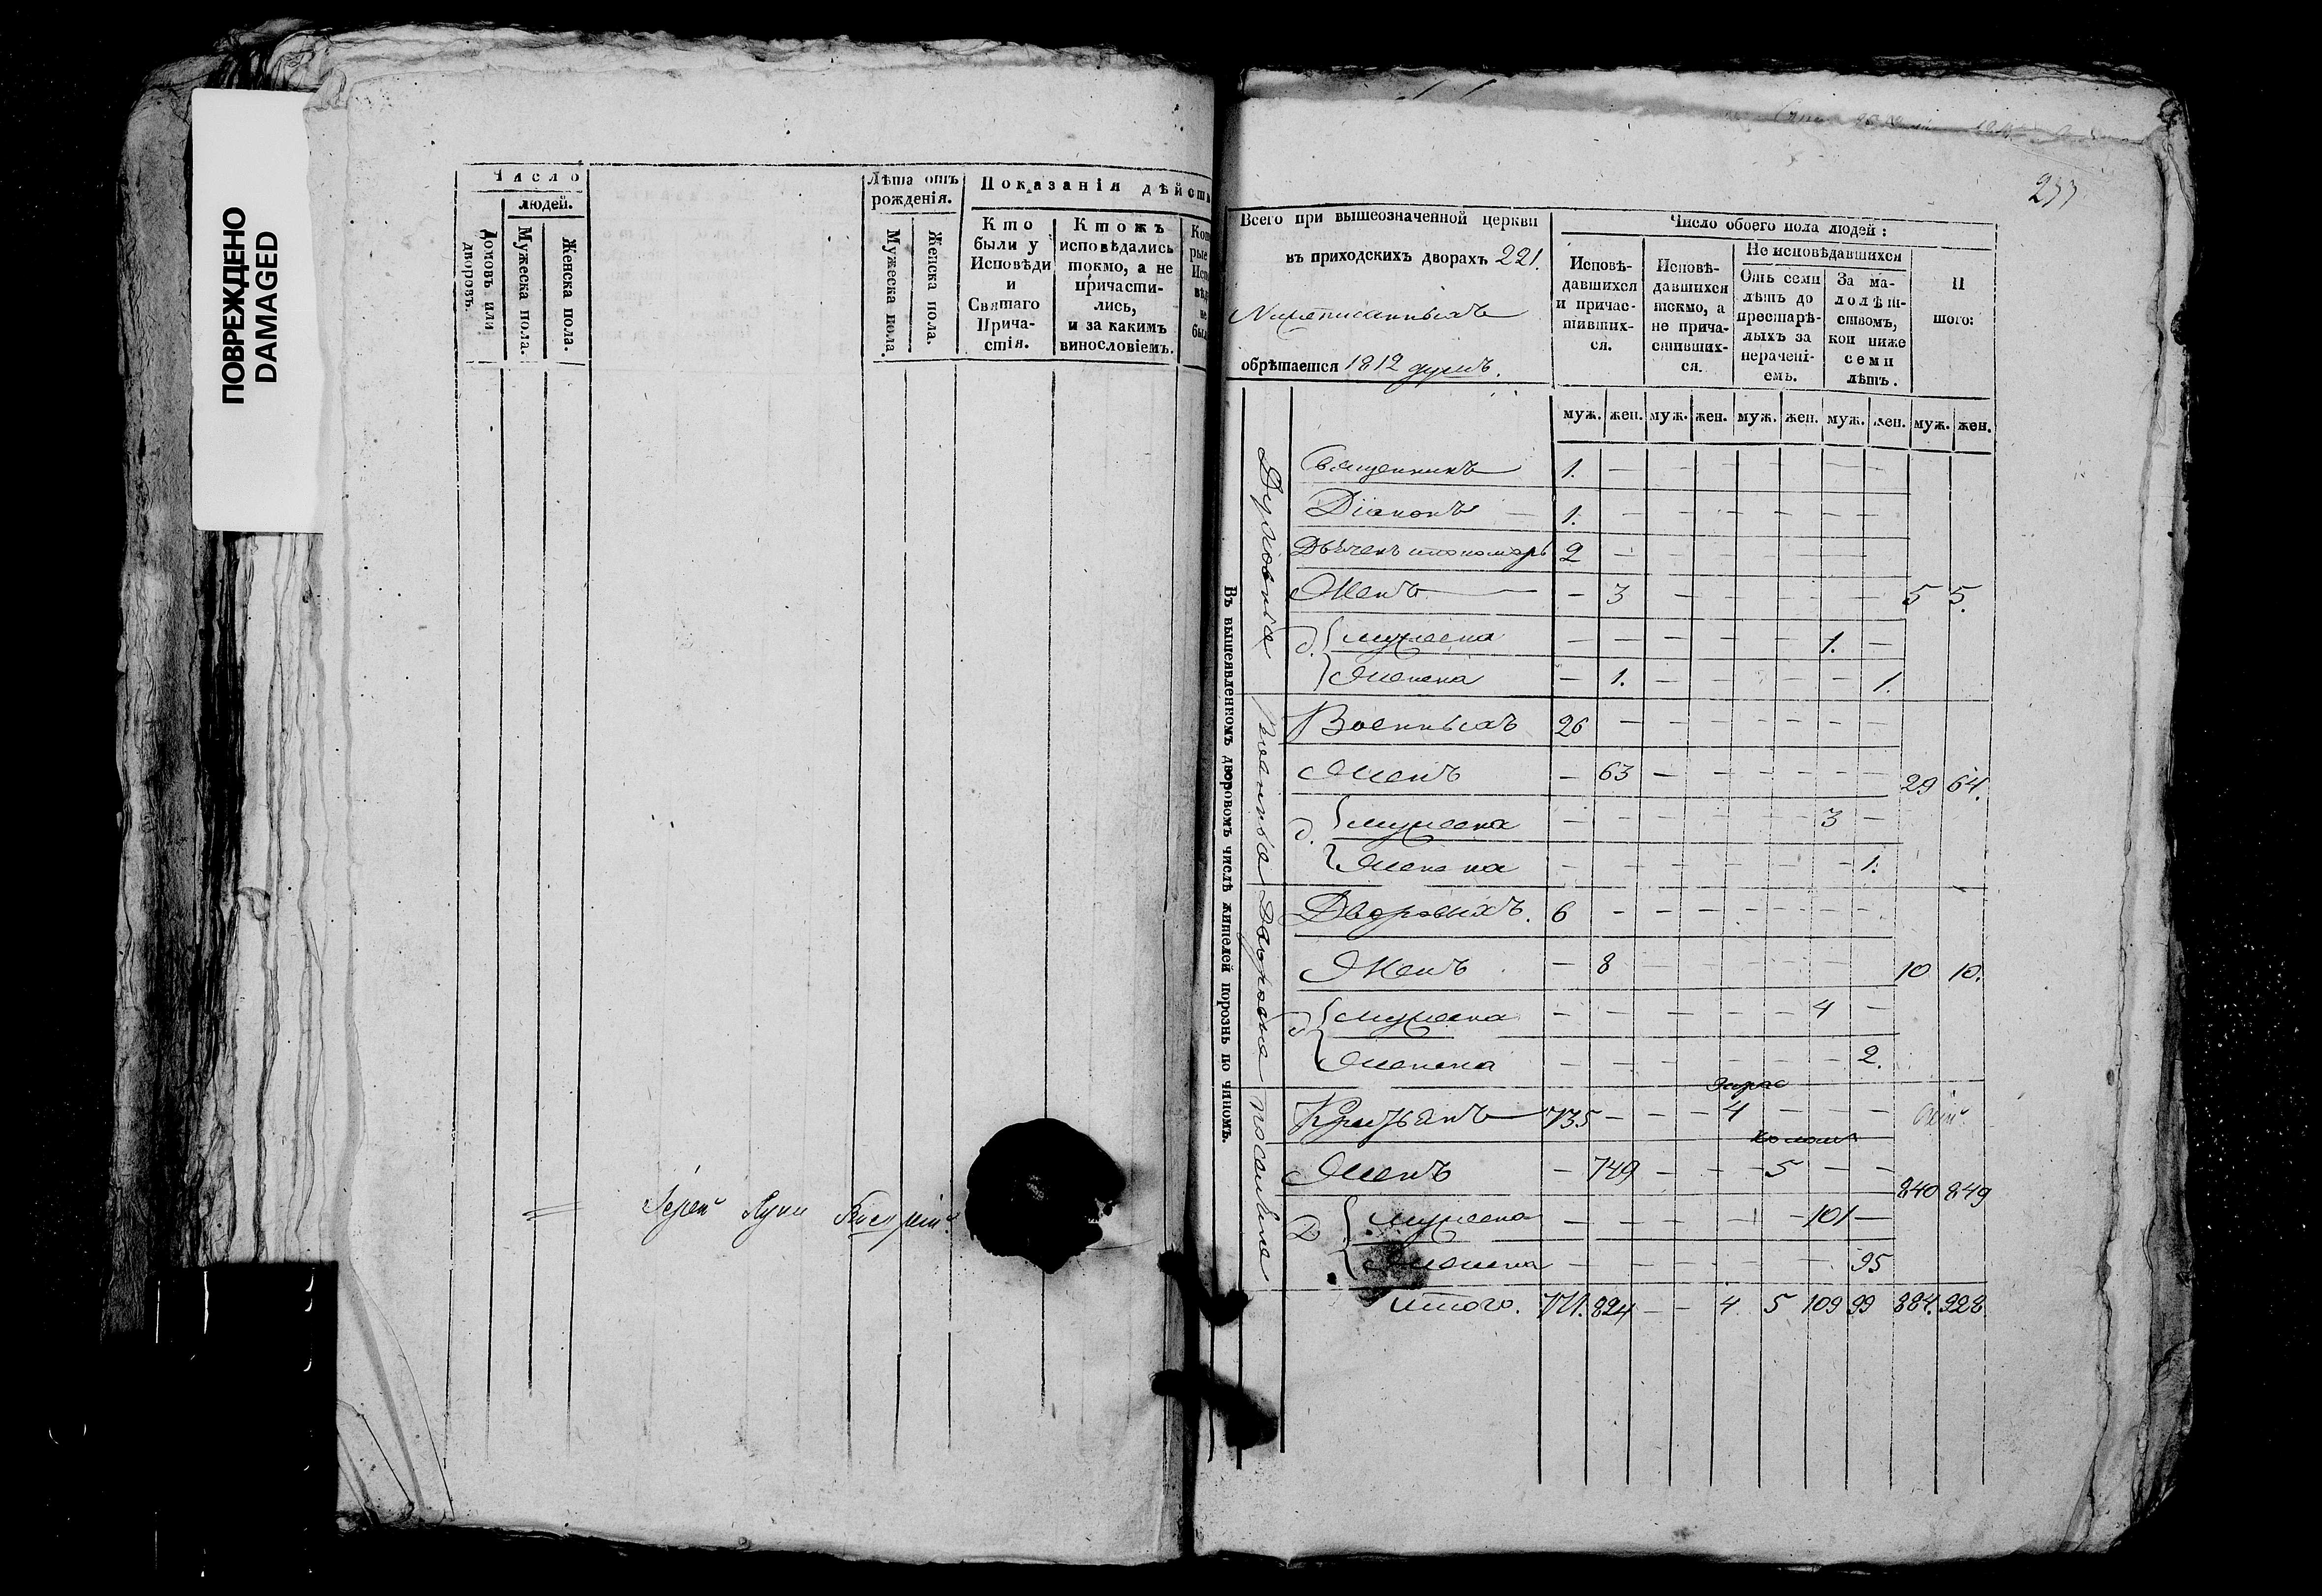 ПОВРЕЖДЕНО
DAMAGED
Число
людей.
Домовъ или дворовъ.
Мужеска пола.
Женска пола.
Лѣта отъ рожденія.
Мужеска пола.
Женска пола.
Показанія дѣйст
Кто были у Исповѣди и Святаго Причастія.
Ктожъ исповѣдались токмо, а не причастились, и за какимъ винословіемъ.
Іерей Лука
277
Всего при вышеозначенной церкви
въ приходскихъ дворахъ 221.
обрѣтается 1812 душъ.
Число обоего пола людей:
Исповѣдавшихся и причастившихся.
Исповѣдавшихся токмо, а не причастившихся.
Не исповѣдавшихся
Отъ семи лѣтъ до престарѣлыхъ за нерачені-емъ.
За малолѣтствомъ, кои ниже семи лѣтъ.
И того:
муж. жен. муж. жен. муж. жен. муж. жен. муж. жен.
Въ вышеявленномъ дворовомъ числѣ жителей порознь по чиномъ.
Духовныя
Священникъ 1. — — — — — — —
Діаконъ — 1. — — — — — — —
Дьячекъ и пономарь 2 — — — — — — —
Женъ — — 3 — — — — — — 5 5.
д. мужеска — — — — — — 1. —
женска — 1. — — — — — 1.
Военныя
Военныхъ 26 — — — — — — —
Женъ — 63 — — — — — — 29 64.
д. мужеска — — — — — — 3 —
женска — — — — — — — 1.
Дворовыя
Дворовыхъ. 6 — — — — — — —
Женъ — 8 — — — — — — 10 10.
д мужеска — — — — — — 4 —
женска — — — — — — — 2.
Поселяне
Крестьянъ — 735 — — — 4 — — —
Женъ — 749 — — — 5 — — 840 849
Д мужеска — — — — — — 101 —
женска — — — — — — — 95
Итого. 771. 824 — — 4 5 109 99 884. 928